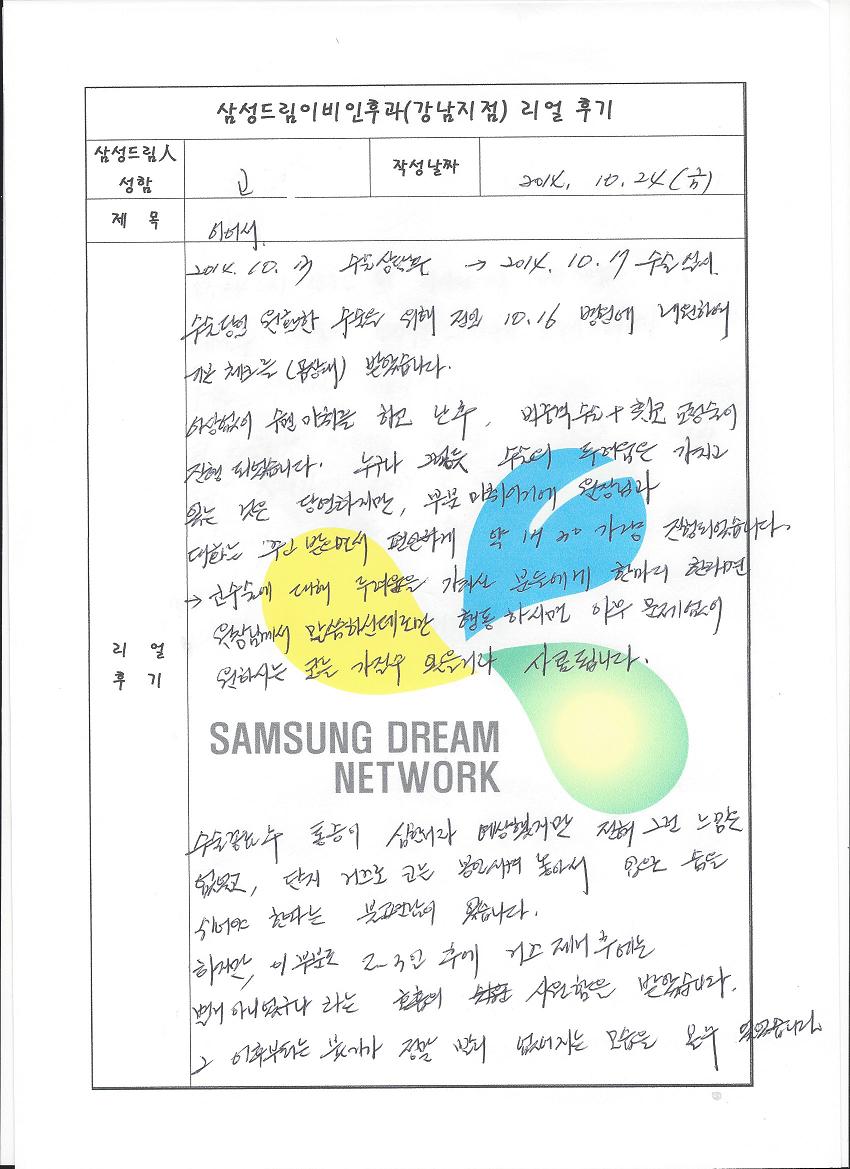 삼성드림이비인후과(강남지점) 리얼 후기
삼성드림人
성함
고
작성날짜
2014. 10. 24(금)
제 목
이어서.
2014. 10. 13 수술상담후 → 2014. 10. 17 수술실시.
수술당일 원활한 수술을 위해 전일 10.16 병원에 내원하여
기본 체크를 (몸상태) 받았습니다.
이상없이 수면마취를 하고 난후, 비중격수술 + 휜코 교정술이
진행 되었습니다. 누구나 그렇듯 수술의 두려움은 가지고
있는 것은 당연하지만, 부분마취이기에 원장님과
대화는 주고 받으면서 편안하게 약 1시 30 가량 진행되었습니다.
→ 코수술에 대해 두려움을 가지신 분들에게 한마디 한다면
원장님께서 말씀하신대로만 행동 하시면 아무 문제없이
원하시는 코를 가질수 있을거라 사료됩니다.
리 얼
후 기
SAMSUNG DREAM
NETWORK
수술끝난후 통증이 심할거라 예상했지만 전혀 그런 느낌은
없었고, 단지 거즈로 코를 봉인시켜 놓아서 입으로 숨을
쉬어야 한다는 불편함이 있습니다.
하지만, 이 부분도 2~3일 후에 거즈 제거 후에는
별거 아니었구나 라는 호흡의 시원함을 받았습니다.
그 이후부터는 붓기가 정말 빨리 없어지는 모습을 볼수 있었습니다.